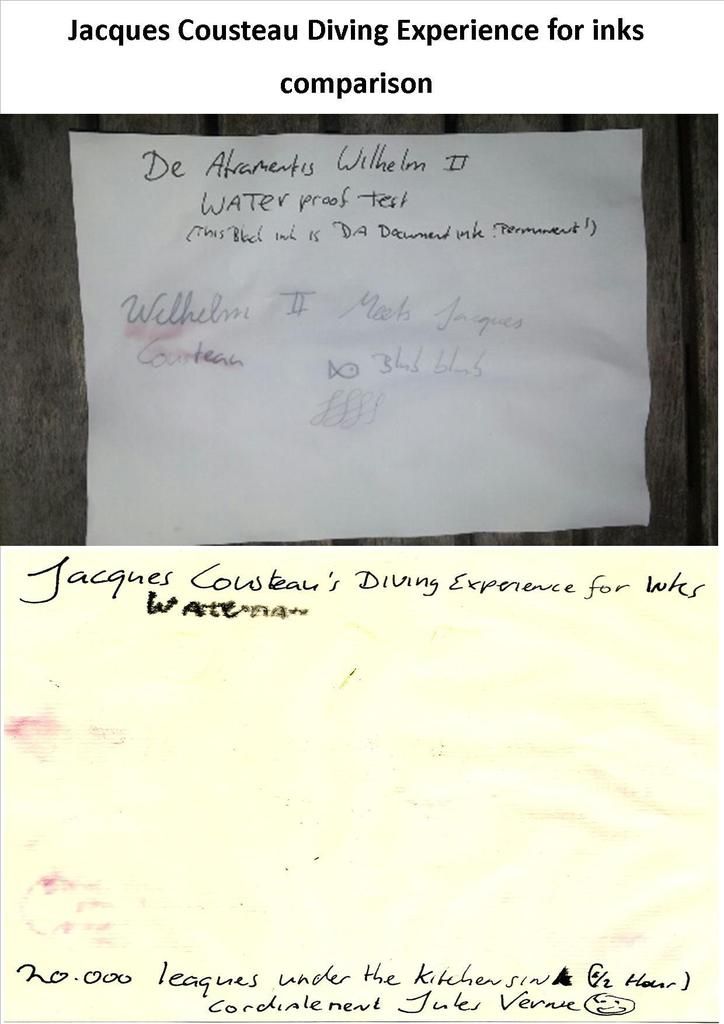 Jacques Cousteau Diving Experience for inks
comparison
De Atramentis Wilhelm II
WATER proof test
(This Black ink is DA Document ink. Permanent!)
Wilhelm II Meets Jacques
Cousteau Blub blub
Jacques Cousteau's Diving Experience for Inks
Waterman
20.000 leagues under the Kitchensink (1/2 Hour)
Cordialement Jules Verne